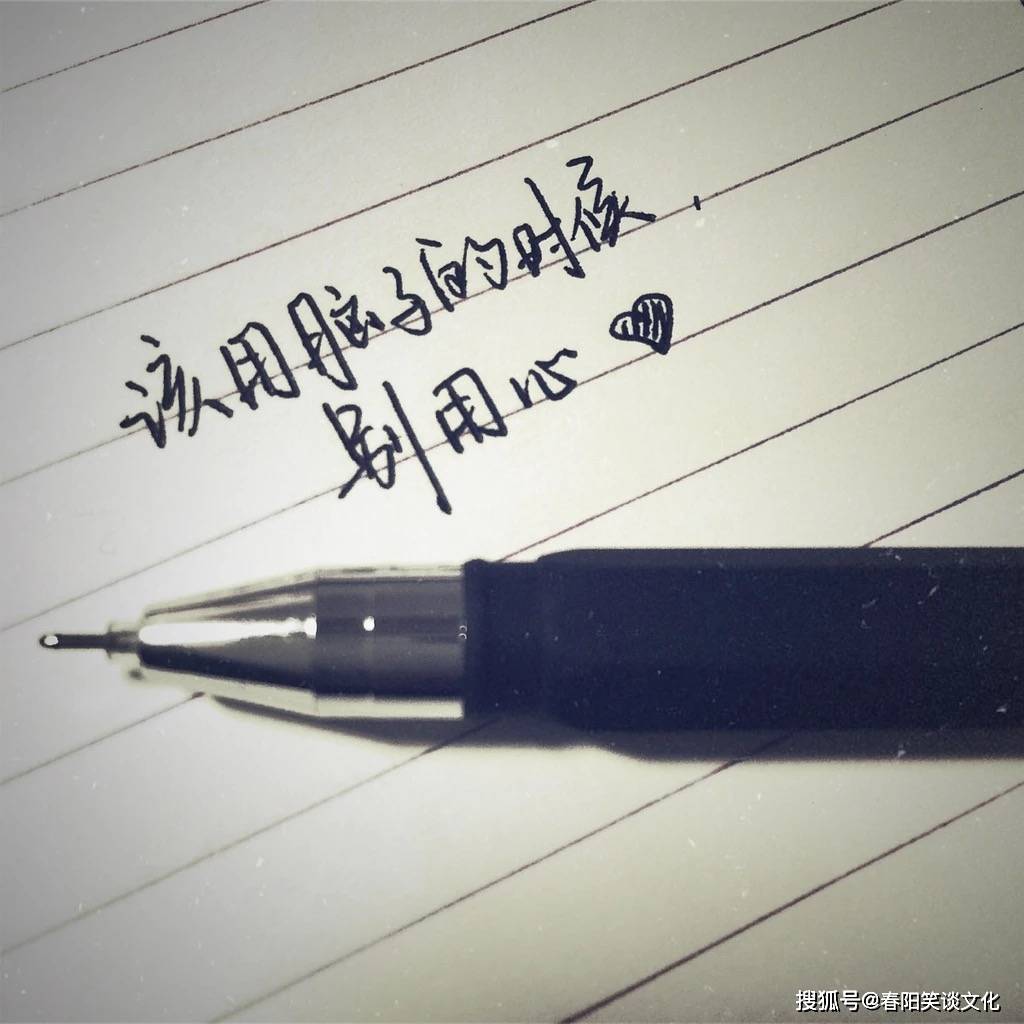 该用脑子的时候.
别用心
搜狐号@春阳笑谈文化